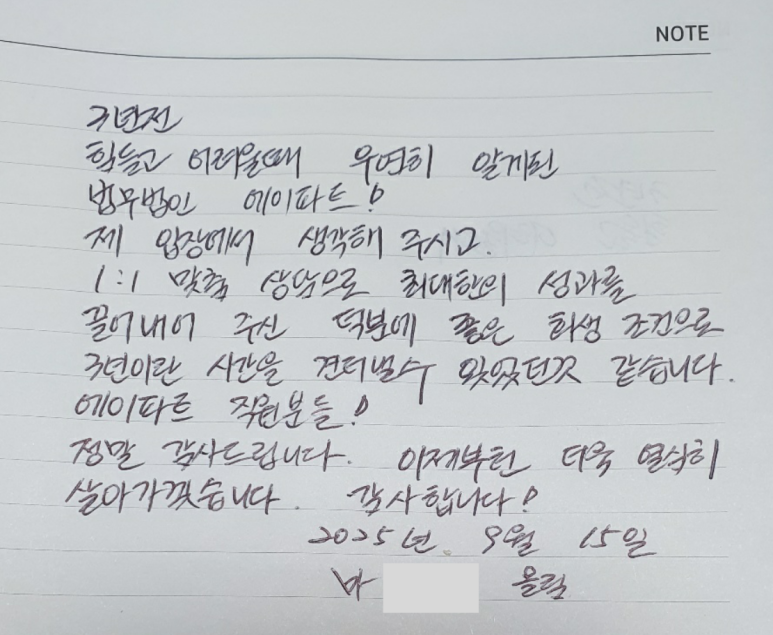 NOTE
3년전
힘들고 어려울때 우연히 알게된
법무법인 에이파트!
제 입장에서 생각해 주시고.
1:1 맞춤 상담으로 최대한의 성과를
끌어내어 주신 덕분에 좋은 회생 조건으로
3년이란 시간을 견뎌낼수 있었던것 같습니다.
에이파트 직원분들!
정말 감사드립니다. 이제부턴 더욱 열심히
살아가겠습니다. 감사합니다!
2025년. 9월 15일
마 올림